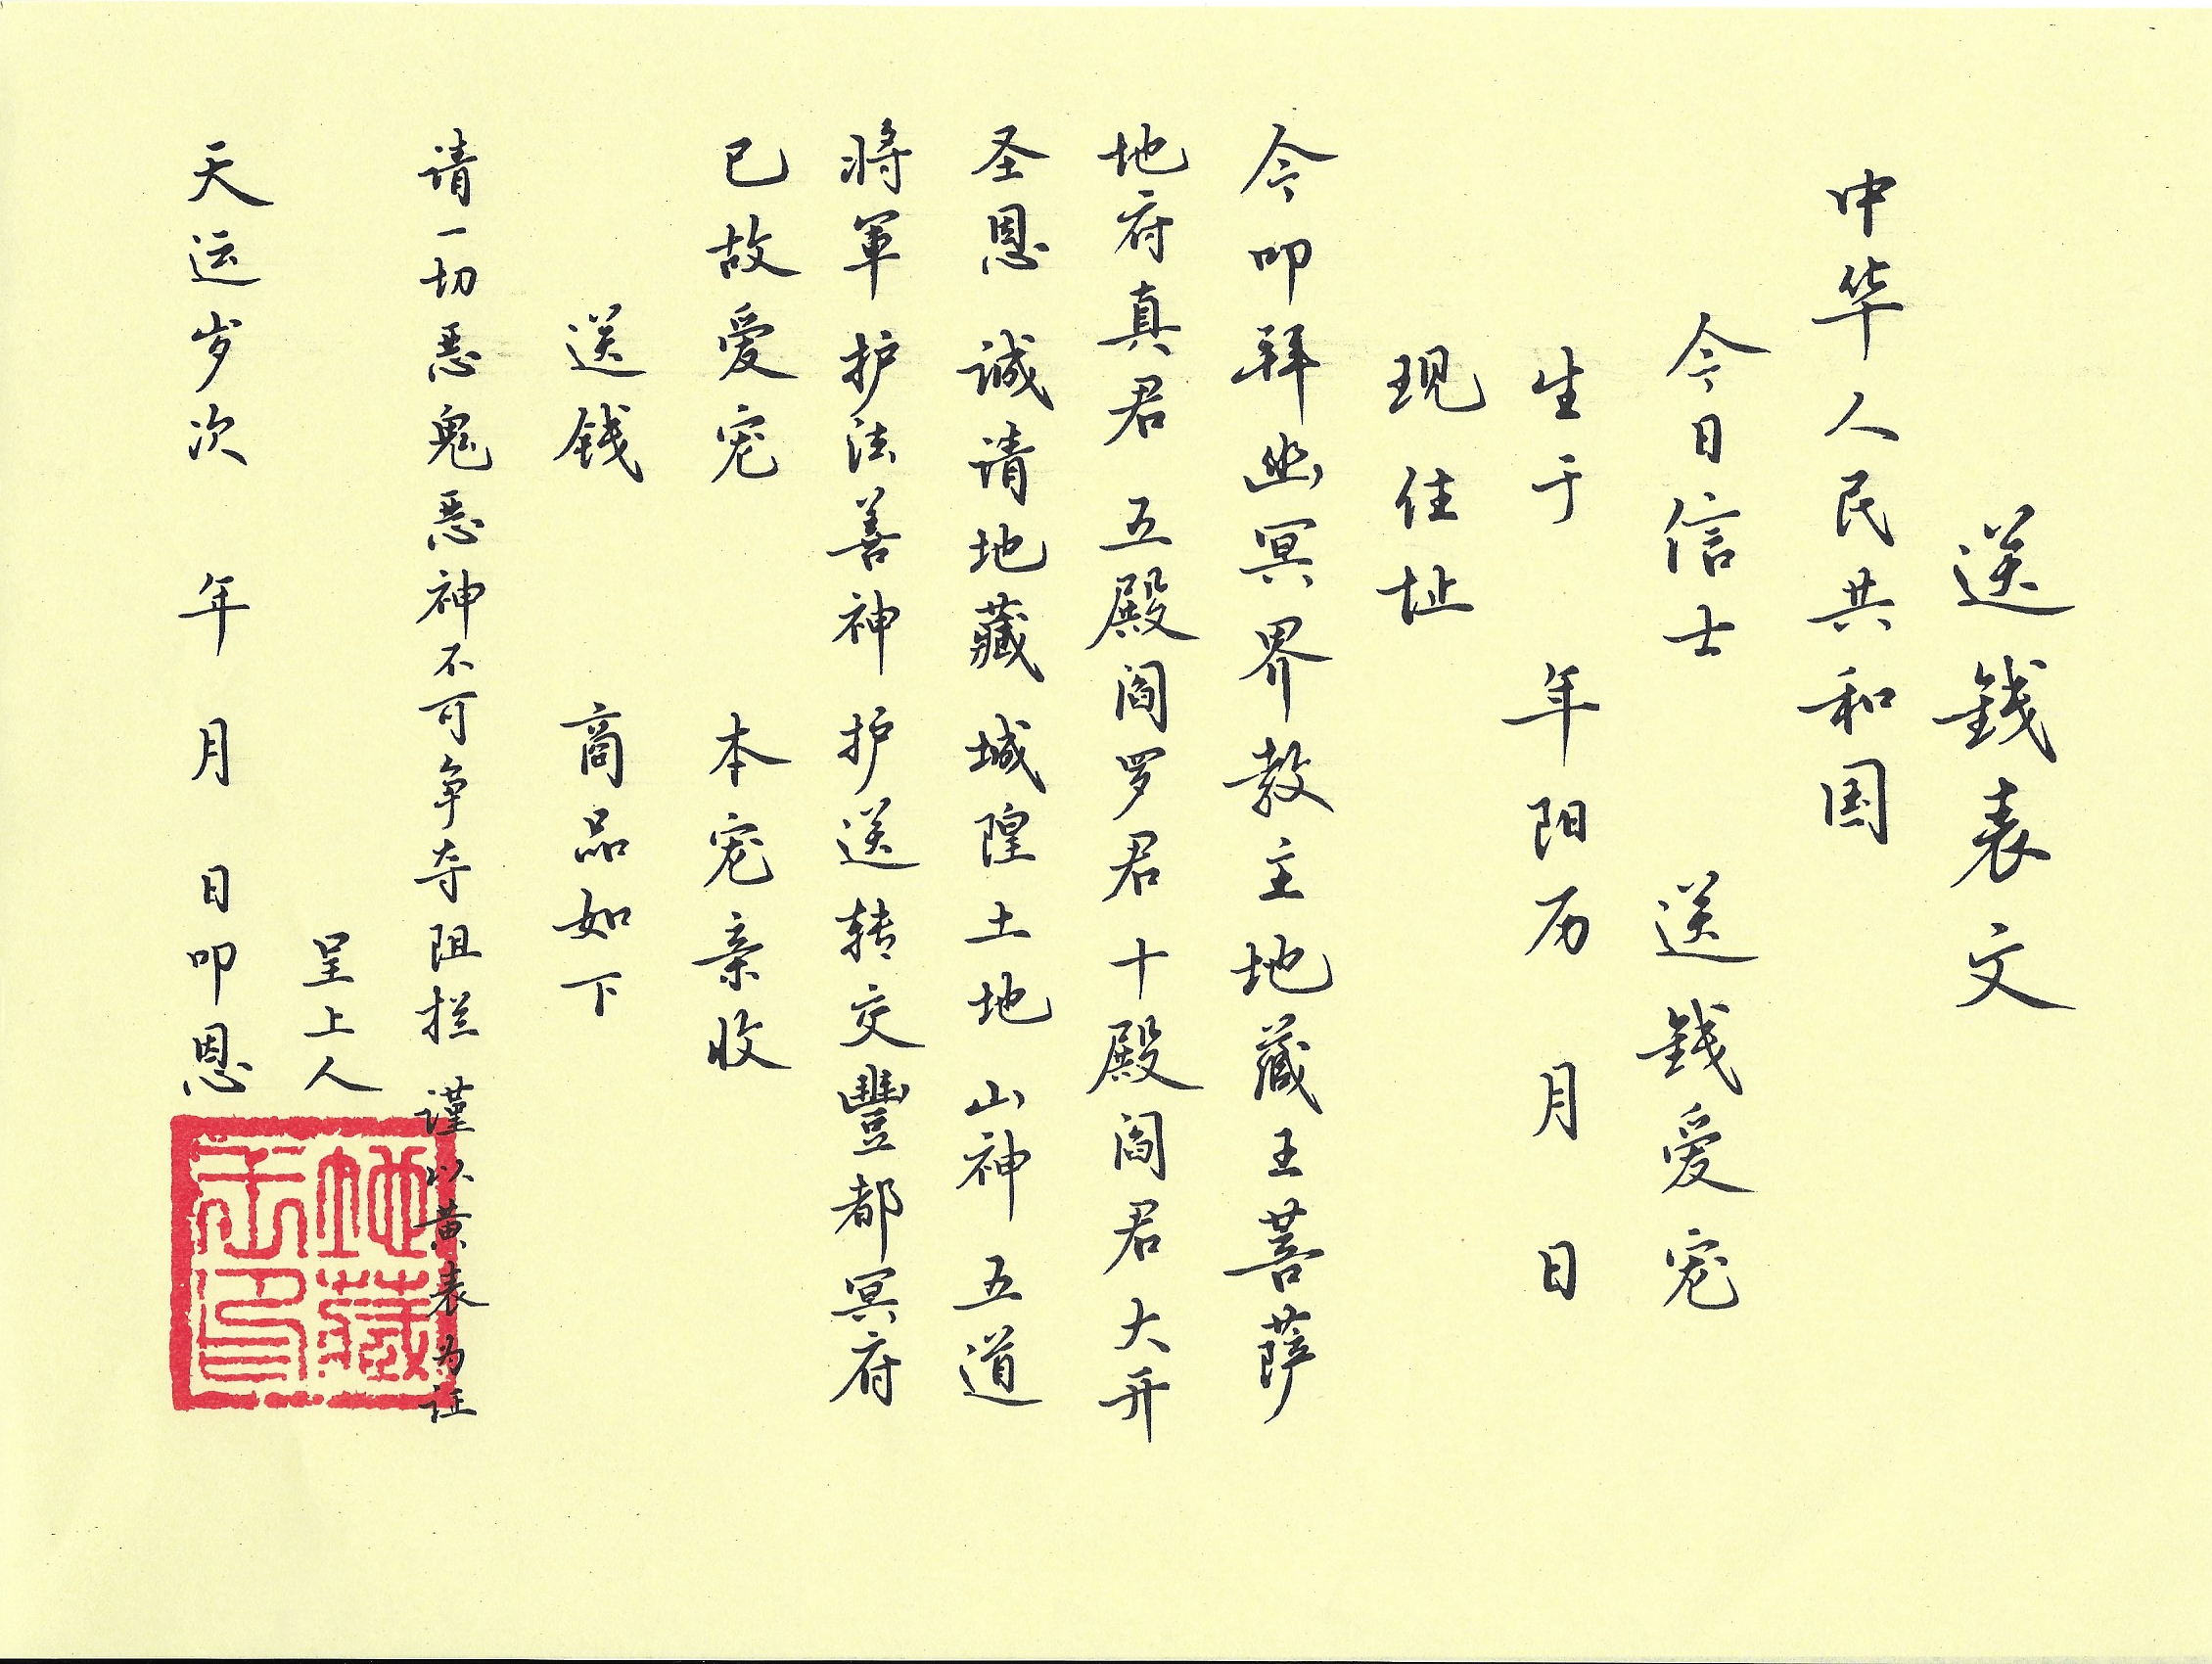 送錢表文
中华人民共和国
今日信士 送錢爱宠
生于 年阳历 月 日
现住址
今叩拜幽冥界教主地藏王菩萨
地府真君 五殿阎罗君 十殿阎君大开
圣恩 诚请地藏 城隍土地 山神 五道
将军 护法善神 护送转交豐都冥府
已故爱宠 本宠亲收
送钱 商品如下
请一切恶鬼恶神不可争夺阻拦 谨以黄表为证
呈上人
天运岁次 年 月 日叩恩
地藏王印